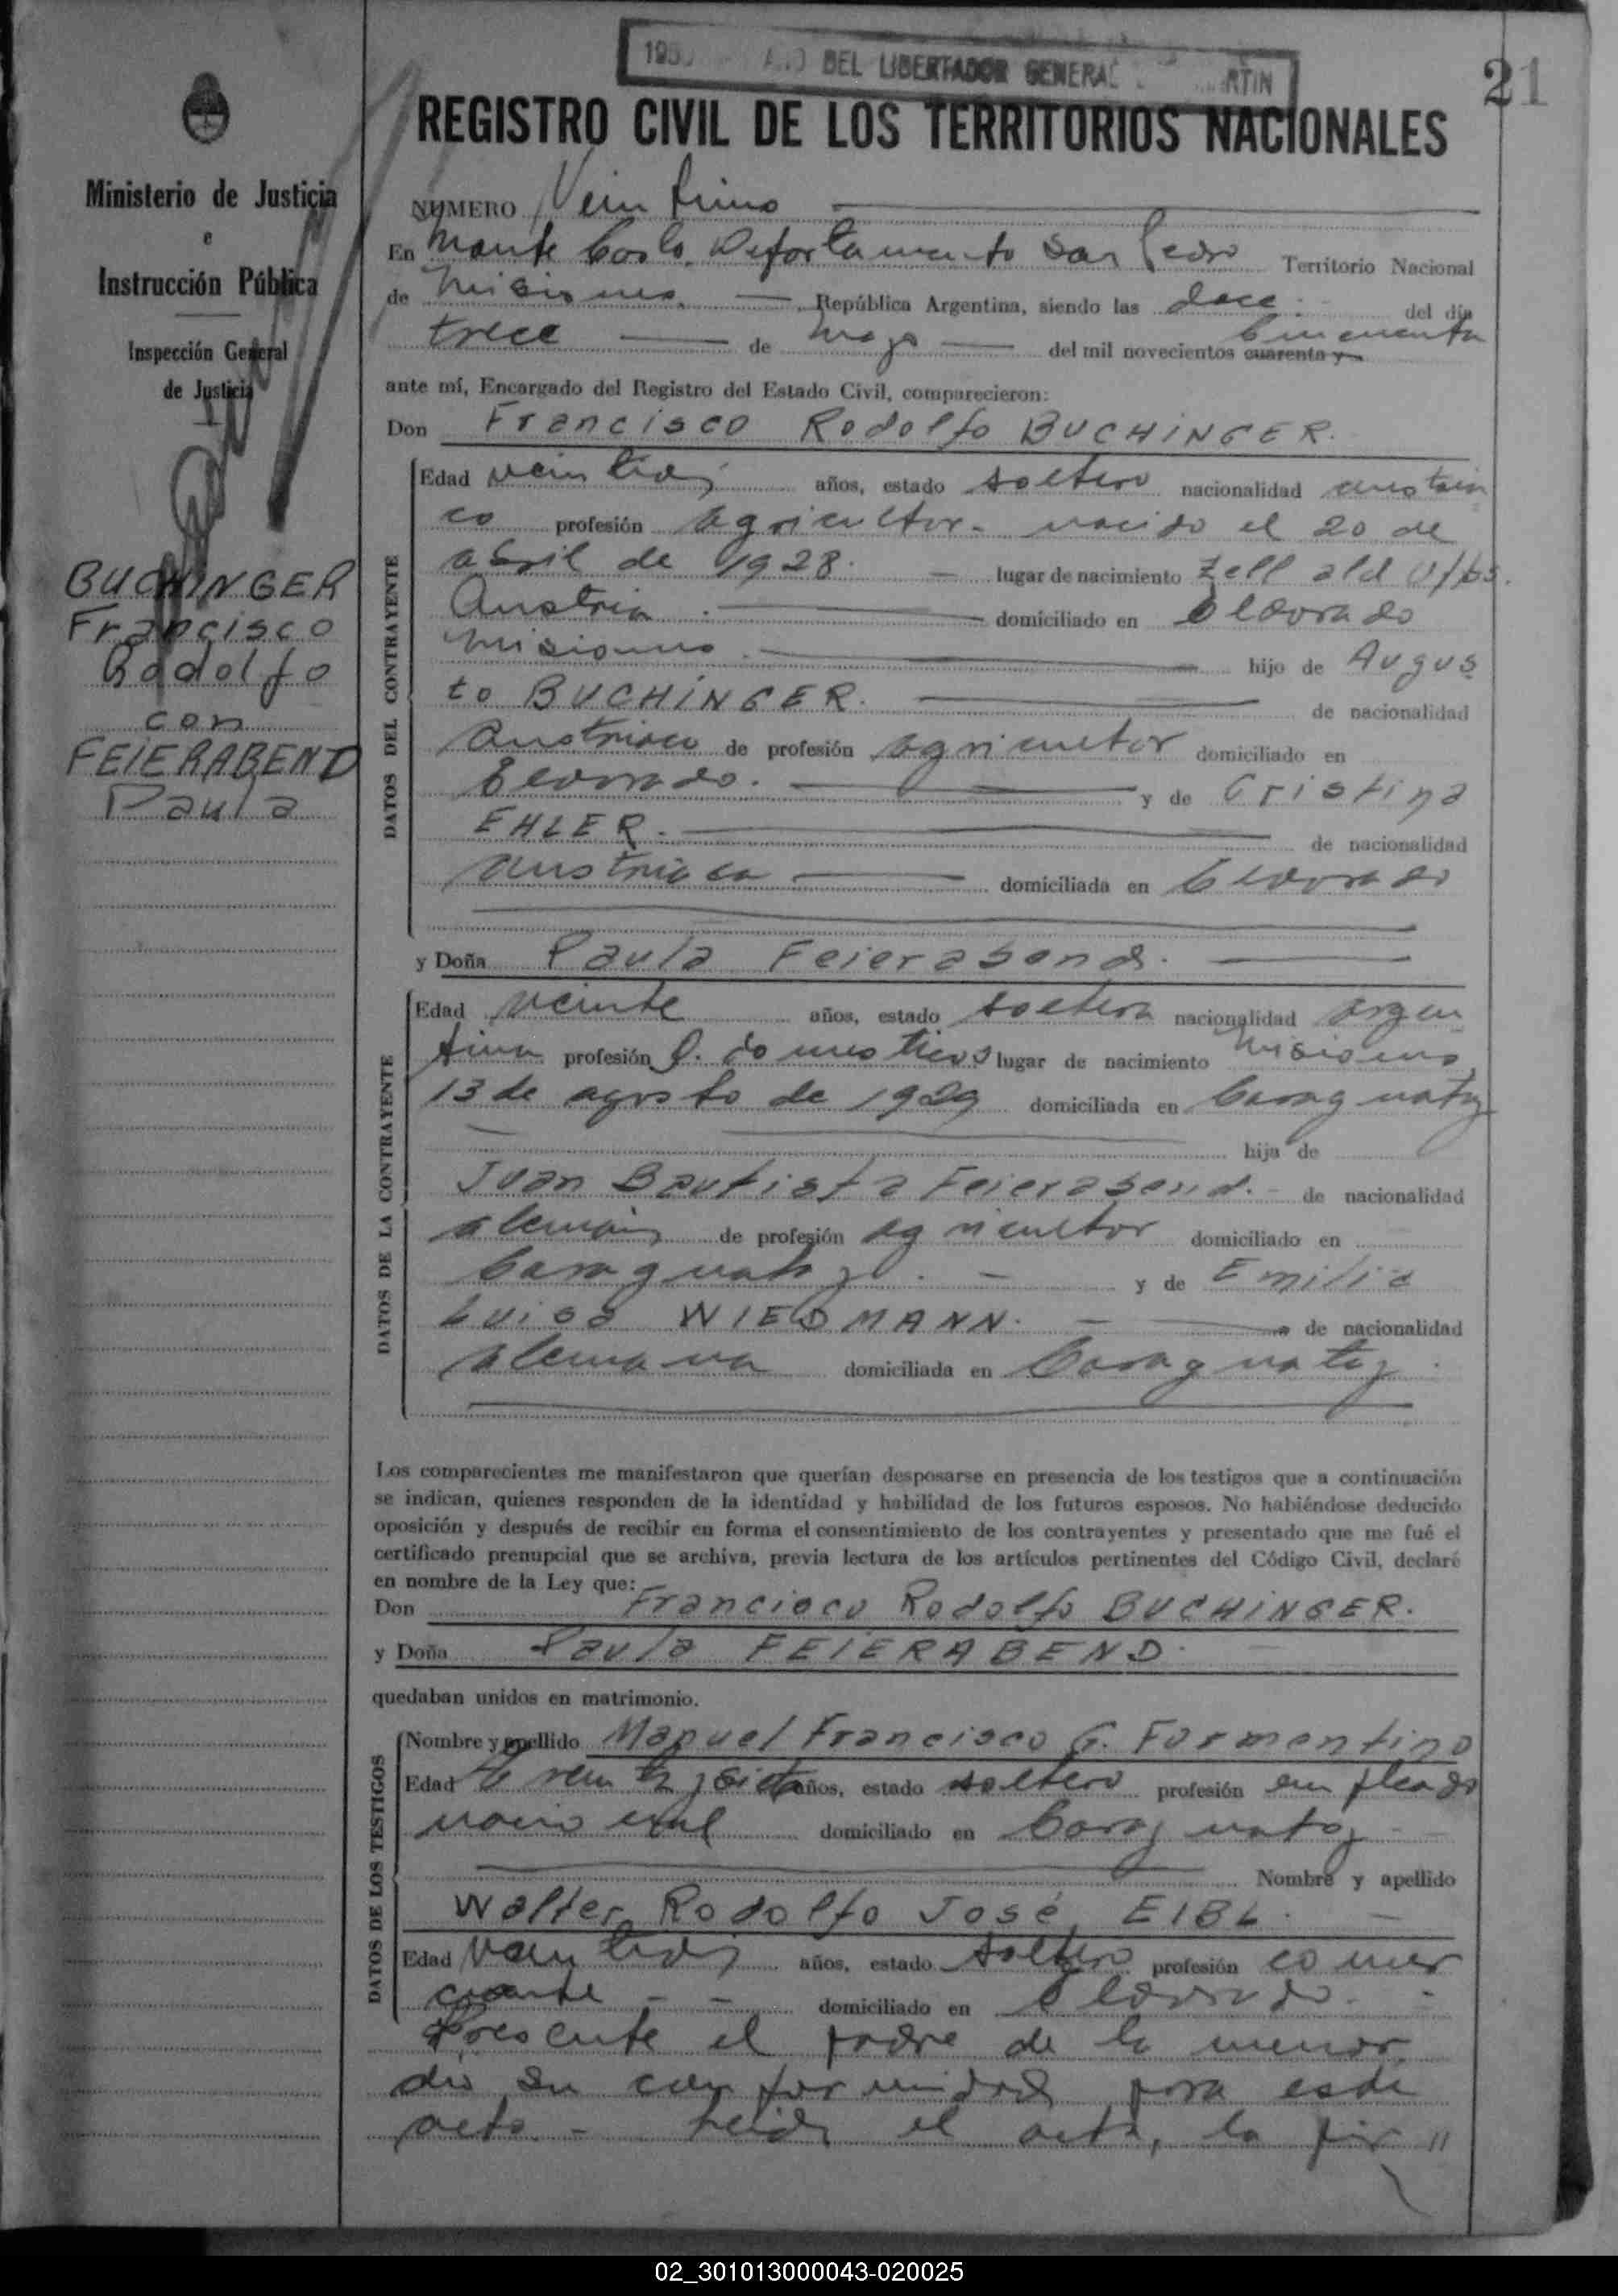 AÑO DEL LIBERTADOR GENERAL
21
REGISTRO CIVIL DE LOS TERRITORIOS NACIONALES
Ministerio de Justicia
e
Instrucción Pública
Inspección General
de Justicia
BUCHINGER
Francisco
Rodolfo
con
FEIERABEND
Paula
NUMERO Veintiuno
En Monte Carlo. Departamento San Pedro Territorio Nacional
de Misiones. República Argentina, siendo las doce. del día
trece de mayo del mil novecientos cuarenta y cincuenta
ante mí, Encargado del Registro del Estado Civil, comparecieron:
Don Francisco Rodolfo BUCHINGER.
DATOS DEL CONTRAYENTE
Edad veintidos años, estado soltero nacionalidad austria
co profesión agricultor. nacido el 20 de
abril de 1928. lugar de nacimiento Zell
Austria. domiciliado en Eldorado
Misiones. hijo de Augus
to BUCHINGER. de nacionalidad
austriaco de profesión agricultor domiciliado en
Eldorado. y de Cristina
EHLER. de nacionalidad
austriaca domiciliada en Eldorado
y Doña Paula Feierabend.
DATOS DE LA CONTRAYENTE
Edad veinte años, estado soltera nacionalidad argen
tina profesión Q. domesticos lugar de nacimiento Misiones
13 de agosto de 1929 domiciliada en Caraguatay
hija de
Juan Bautista Feierabend. de nacionalidad
aleman de profesión agricultor domiciliado en
Caraguatay. y de Emilia
Luisa WIEDMANN. de nacionalidad
alemana domiciliada en Caraguatay.
Los comparecientes me manifestaron que querían desposarse en presencia de los testigos que a continuación
se indican, quienes responden de la identidad y habilidad de los futuros esposos. No habiéndose deducido
oposición y después de recibir en forma el consentimiento de los contrayentes y presentado que me fué el
certificado prenupcial que se archiva, previa lectura de los artículos pertinentes del Código Civil, declaré
en nombre de la Ley que:
Don Francisco Rodolfo BUCHINGER.
y Doña Paula FEIERABEND.
quedaban unidos en matrimonio.
DATOS DE LOS TESTIGOS
Nombre y apellido Manuel Francisco G. Formentino
Edad treinta y siete años, estado soltero profesión empleado
nacional domiciliado en Caraguatay
Nombre y apellido
Walter Rodolfo José EIBL.
Edad veintidos años, estado soltero profesión comer
ciante domiciliado en Eldorado.
Presente el padre de la menor,
dio su conformidad para este
acto. - Leida el acta, la fir //
02_301013000043-020025